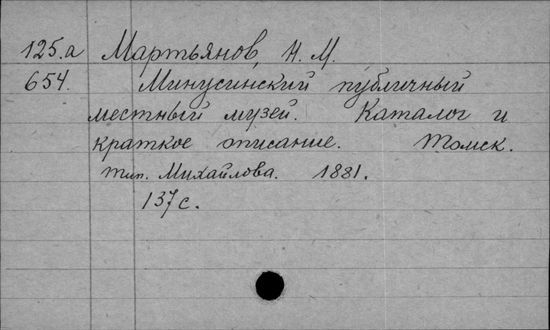 125.а Мартьянов, Н. М.
654. Минусинский публичный
местный музей. Каталог и
краткое описание. Томск.
тип. Михайлова. 1881.
137 с.